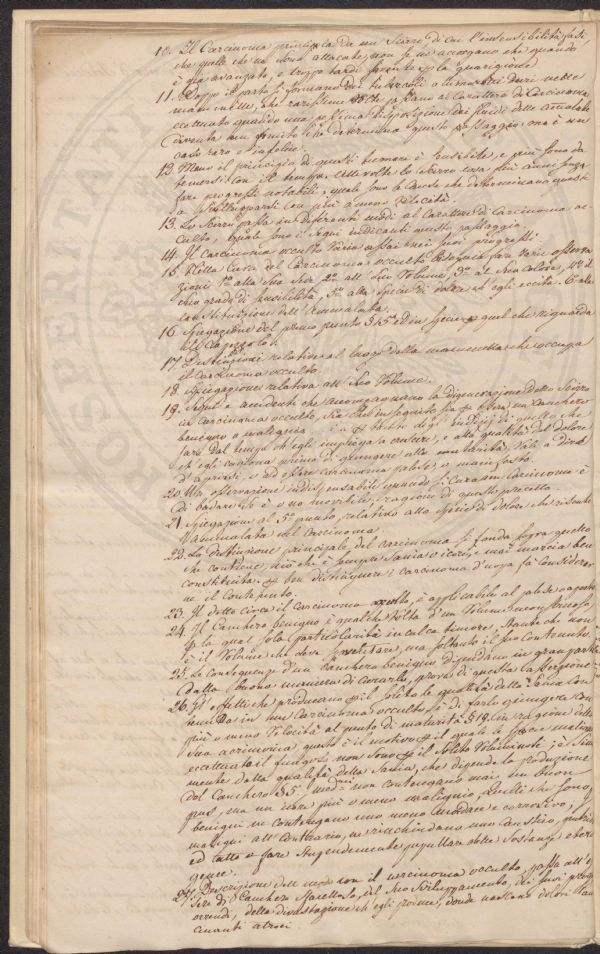 10. Il Carcinoma principia da un Scirro di cui l'insensibilità fa sì
che quelle che ne sono attaccate, non se ne accorgano che quando
è già avanzato, e troppo tardi sovente per la guarigione
11. Doppo il parto si formano dei tubercoli o tumoretti duri nelle
mammelle, che rarissime volte passano al Carattere di Carcinoma
eccettuato quando una pessima disposizione dei fluidi delle
diventa un fomite che determina questo passaggio, ma è un
caso raro e infelice.
12. Meno il principio di questi tumori è sensibile, e più sono da
temersi con il tempo. Alle volte lo Scirro resta più anni senza
fare progressi notabili, quale sono le Cause che determinano questi
a svilupparsi con più o meno celerità.
13. Lo Scirro passa in differenti modi al Carattere di Carcinoma oc
culto, quale sono i segni indicanti questo passaggio
14. Il Carcinoma occulto varia assai nei suoi progressi.
15. Nella Cura del Carcinoma occulto bisogna fare varie osserva
zioni 1º alla sua Sede 2º al suo Volume, 3º al suo Colore, 4º il
suo grado di sensibilità, 5º alla specie di dolore ch'egli eccita. E alla
constituzione dell'Ammalata.
16. Spiegazione del primo punto § 15º ed in specie quel che riguarda
17. Distinzioni relative al luogo della mammella che occupa
il Carcinoma occulto.
18. Spiegazione relativa al suo Volume.
19. Segni e accidenti che accompagnano la degenerazione dello Scirro
in Carcinoma occulto, sia che in seguito sia per essere un Canchero
benigno o maligno: si tratta degl'indizj di quello che
farà dal tempo ch'egli impiega a crescere, e alla qualità del dolore
ch'egli cagiona prima di giungere alla maturità, vale a dire
d'aprirsi o ad essere carcinoma palese, o manifesto.
20. Una osservazione indispensabile quando si cura un Carcinoma è
di badare se è o no movibile, ragione di questo precetto.
21. Spiegazioni al 5º punto relativo alla specie di dolore che risente
l'Ammalata del Carcinoma
22. La distinzione principale del carcinoma si fonda sopra quello
che contiene, ciò che è sempre Sania o icore, e mai marcia ben
constituita. per ben distinguere i carcinoma d'uopo fa' considerar
ne il Contenuto.
23. Il detto circa il Carcinoma occulto, è applicabile al palese o aperto
24. Il Canchero benigno è qualche volta d'un Volume mostruoso,
per la qual sola particolarità incalza timore, stante che non
è il Volume che deve spaventare, ma soltanto il suo Contenuto
25. Le Conseguenze d'un Canchero benigno dipendano in gran parte
dalla buona maniera di curarlo, prova di questa asserzione
26. Gl'effetti che producano per il solito le qualità della Sania con
tenuta in un Carcinoma occulto, è di farlo giungere con
più o meno velocità al punto di maturità § 19. in ragione della
sua acrimonia, questo è il motivo per il quale le spere maligne
eccettuata il fungoso non sono per il solito Voluminose; è sicu
mente dalla qualità della Sania, che dipende la produzione
del Canchero § 5. non contengano mai un buon
pus, ma un icore più o meno maligno, quelli che sono
benigni ne contengano uno meno mordace e corrosivo, i
maligni all'Contrario, ne rinchiudano uno Caustico, putrido
ed atto a fare stupendemente pupullare delle sostanze etero
genee.
27. Descrizione del modo con il carcinoma occulto, passa all'es
sere di Canchero sfacelloso, del suo sviluppamento, dei suoi progressi
orrendi, della devastazione ch'egli produce, donde nascono dolori lan
cinanti atroci.